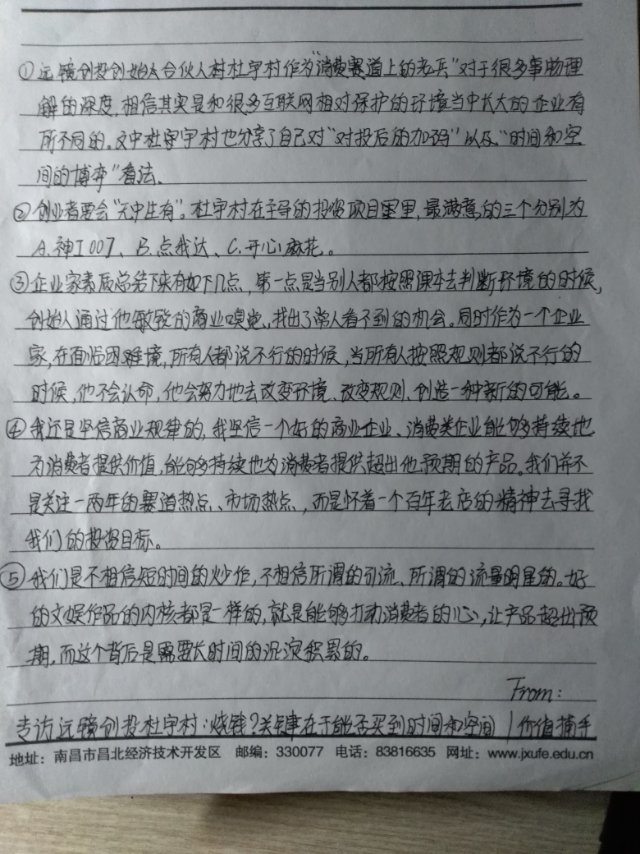 ①远镜创投创始人合伙人村杜宇村作为“消费赛道上的老兵”对于很多事物理
解的深度,相信其实是和很多互联网相对保护的环境当中长大的企业有
所不同的。文中杜宇宇村也分享了自己对“对投后的加码”以及“时间和空
间的博弈”看法、
②创业者要会“无中生有”。杜宇村在主导的投资项目里里,最满意的三个分别为
A.神工007、B.点我达、C.开心麻花。
③企业家素质总结下来有如下几点,第一点是当别人都按照课本去判断环境的时候,
创始人通过他敏锐的商业嗅觉,找出了常人看不到的机会。同时作为一个企业
家,在面临困难境,所有人都说不行的时候,当所有人按照规则都说不行的
时候,他不会认命,他会努力地去改变环境、改变规则、创造一种新的可能。
④我还是坚信商业规律的,我坚信一个好的商业企业、消费类企业能够持续地
为消费者提供价值,能够持续地为消费者提供超出他预期的产品。我们并不
是关注一两年的赛道热点、市场热点,而是怀着一个百年老店的精神去寻找
我们的投资目标。
⑤我们是不相信短时间的炒作,不相信所谓的引流、所谓的流量明星的。好
的文娱作品的内核都是一样的,就是能够打动消费者的心,让产品超出预
期,而这个背后是需要长时间的沉淀积累的。
From:
专访远镜创投杜宇村:烧钱?关键在于能否买到时间和空间 | 价值捕手
地址:南昌市昌北经济技术开发区 邮编:330077 电话:83816635 网址:www.jxufe.edu.cn